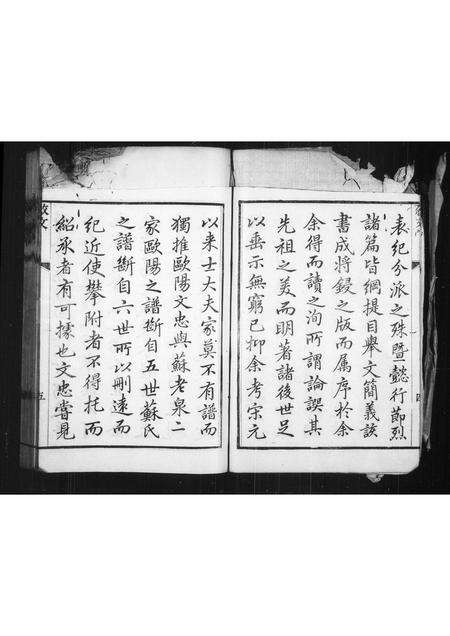 表紀分派之殊暨懿行節烈
諸篇皆綱提目舉文簡義該
書成將鋟之版而属序於余
余得而讀之洵所謂論譔其
先祖之美而明著諸後世足
以垂示無窮已抑余考宋元
以来士大夫家莫不有譜而
獨推歐陽文忠與蘇老泉二
家歐陽之譜斷自五世蘇氏
之譜斷自六世所以刪遠而
紀近使攀附者不得托而
紹承者有可據也文忠嘗見
五